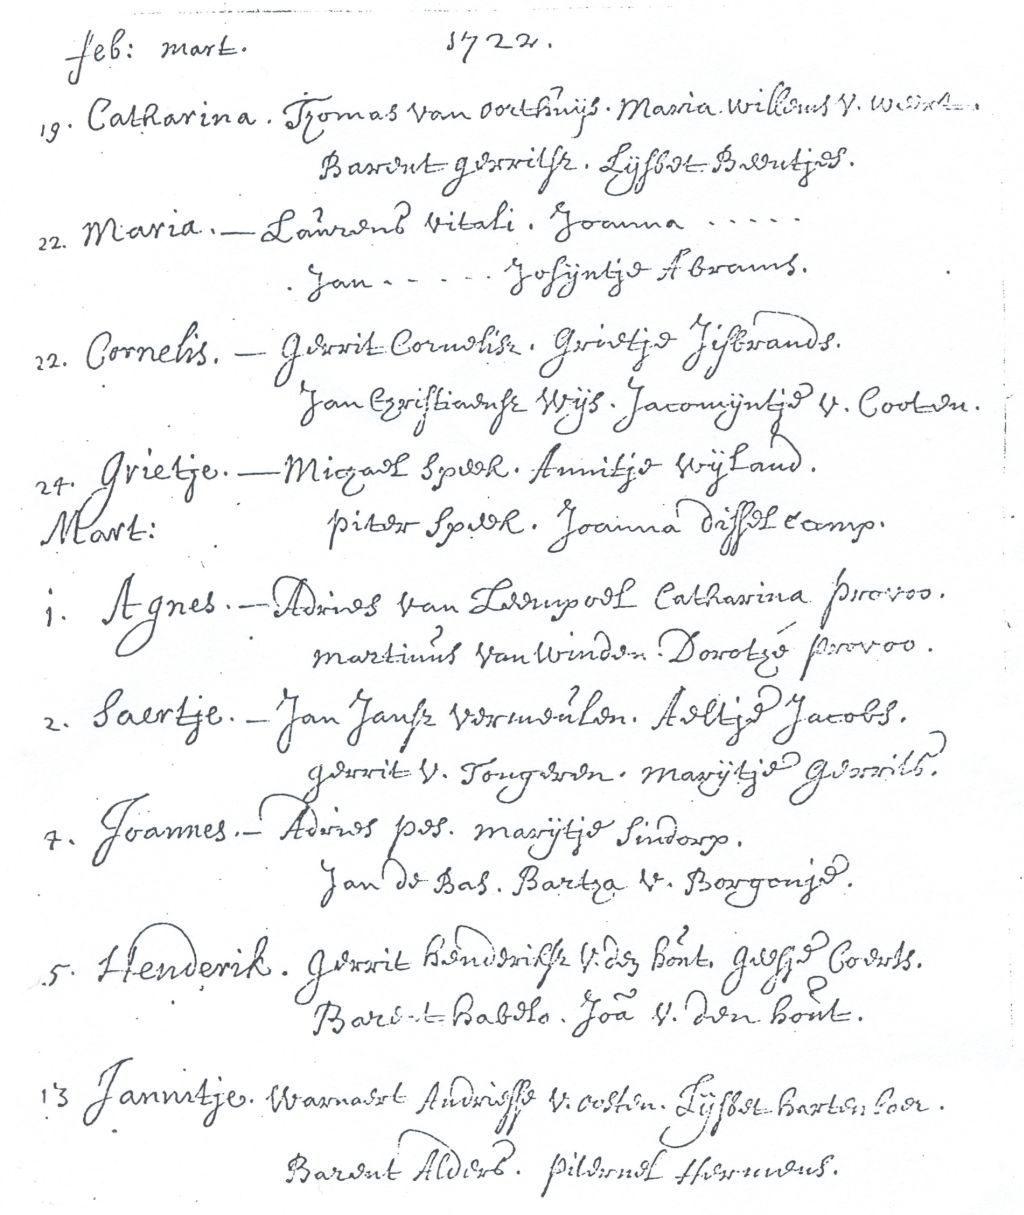 feb: mart. 1722.
19. Catharina. Thomas van oosthuijs. Maria willems v. weert.
Barent gerritsz. Lijsbet Beentjes.
22. Maria. — Laurens vitali. Joanna . . . . .
. Jan - - - - - Josijntje Abrams.
22. Cornelis. — Gerrit Cornelisz. Grietje Jisbrands.
Jan Christiaensz Wijs. Jacomijntje v. Cooten.
24. Grietje. — Michael Speek. Annitje Wijland.
Mart: Piter Speek. Joanna disselcamp.
1. Agnes. — Adries van Leempoel Catharina Provoo.
Martinus van Winden. Dorothé Provoo.
2. Saertje. — Jan Jansz vermeulen. Aeltje Jacobs.
gerrit v. Tongeren. marijtje Gerrits.
7. Joannes. — Adries pes. marijtje Sindorp.
Jan de Bas. Bartha v. Borgonje.
5. Henderik. Gerrit henderiksz v. den hout. Geesje Coerts.
Barent habelo. Joã v. den hout.
13 Jannitje. Warnaert Andriesse v. oosten. Lijsbet hartenboer.
Barent Alders. Piternel Hermens.